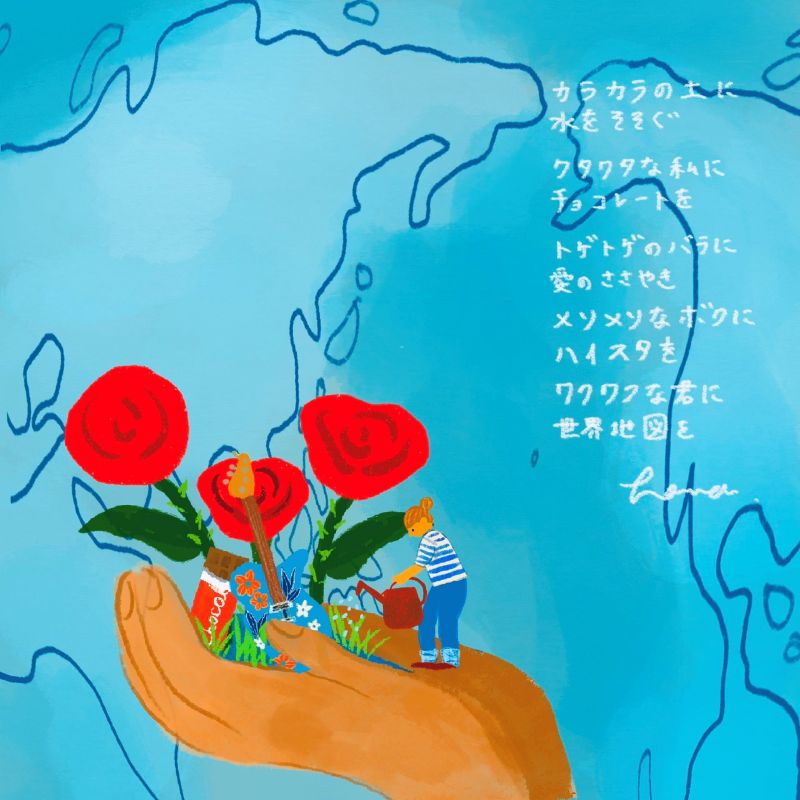 カラカラの土に
水をそそぐ
クタクタな私に
チョコレートを
トゲトゲのバラに
愛のささやき
メソメソなボクに
ハイスタを
ワクワクな君に
世界地図を
hana.
CHOCOL